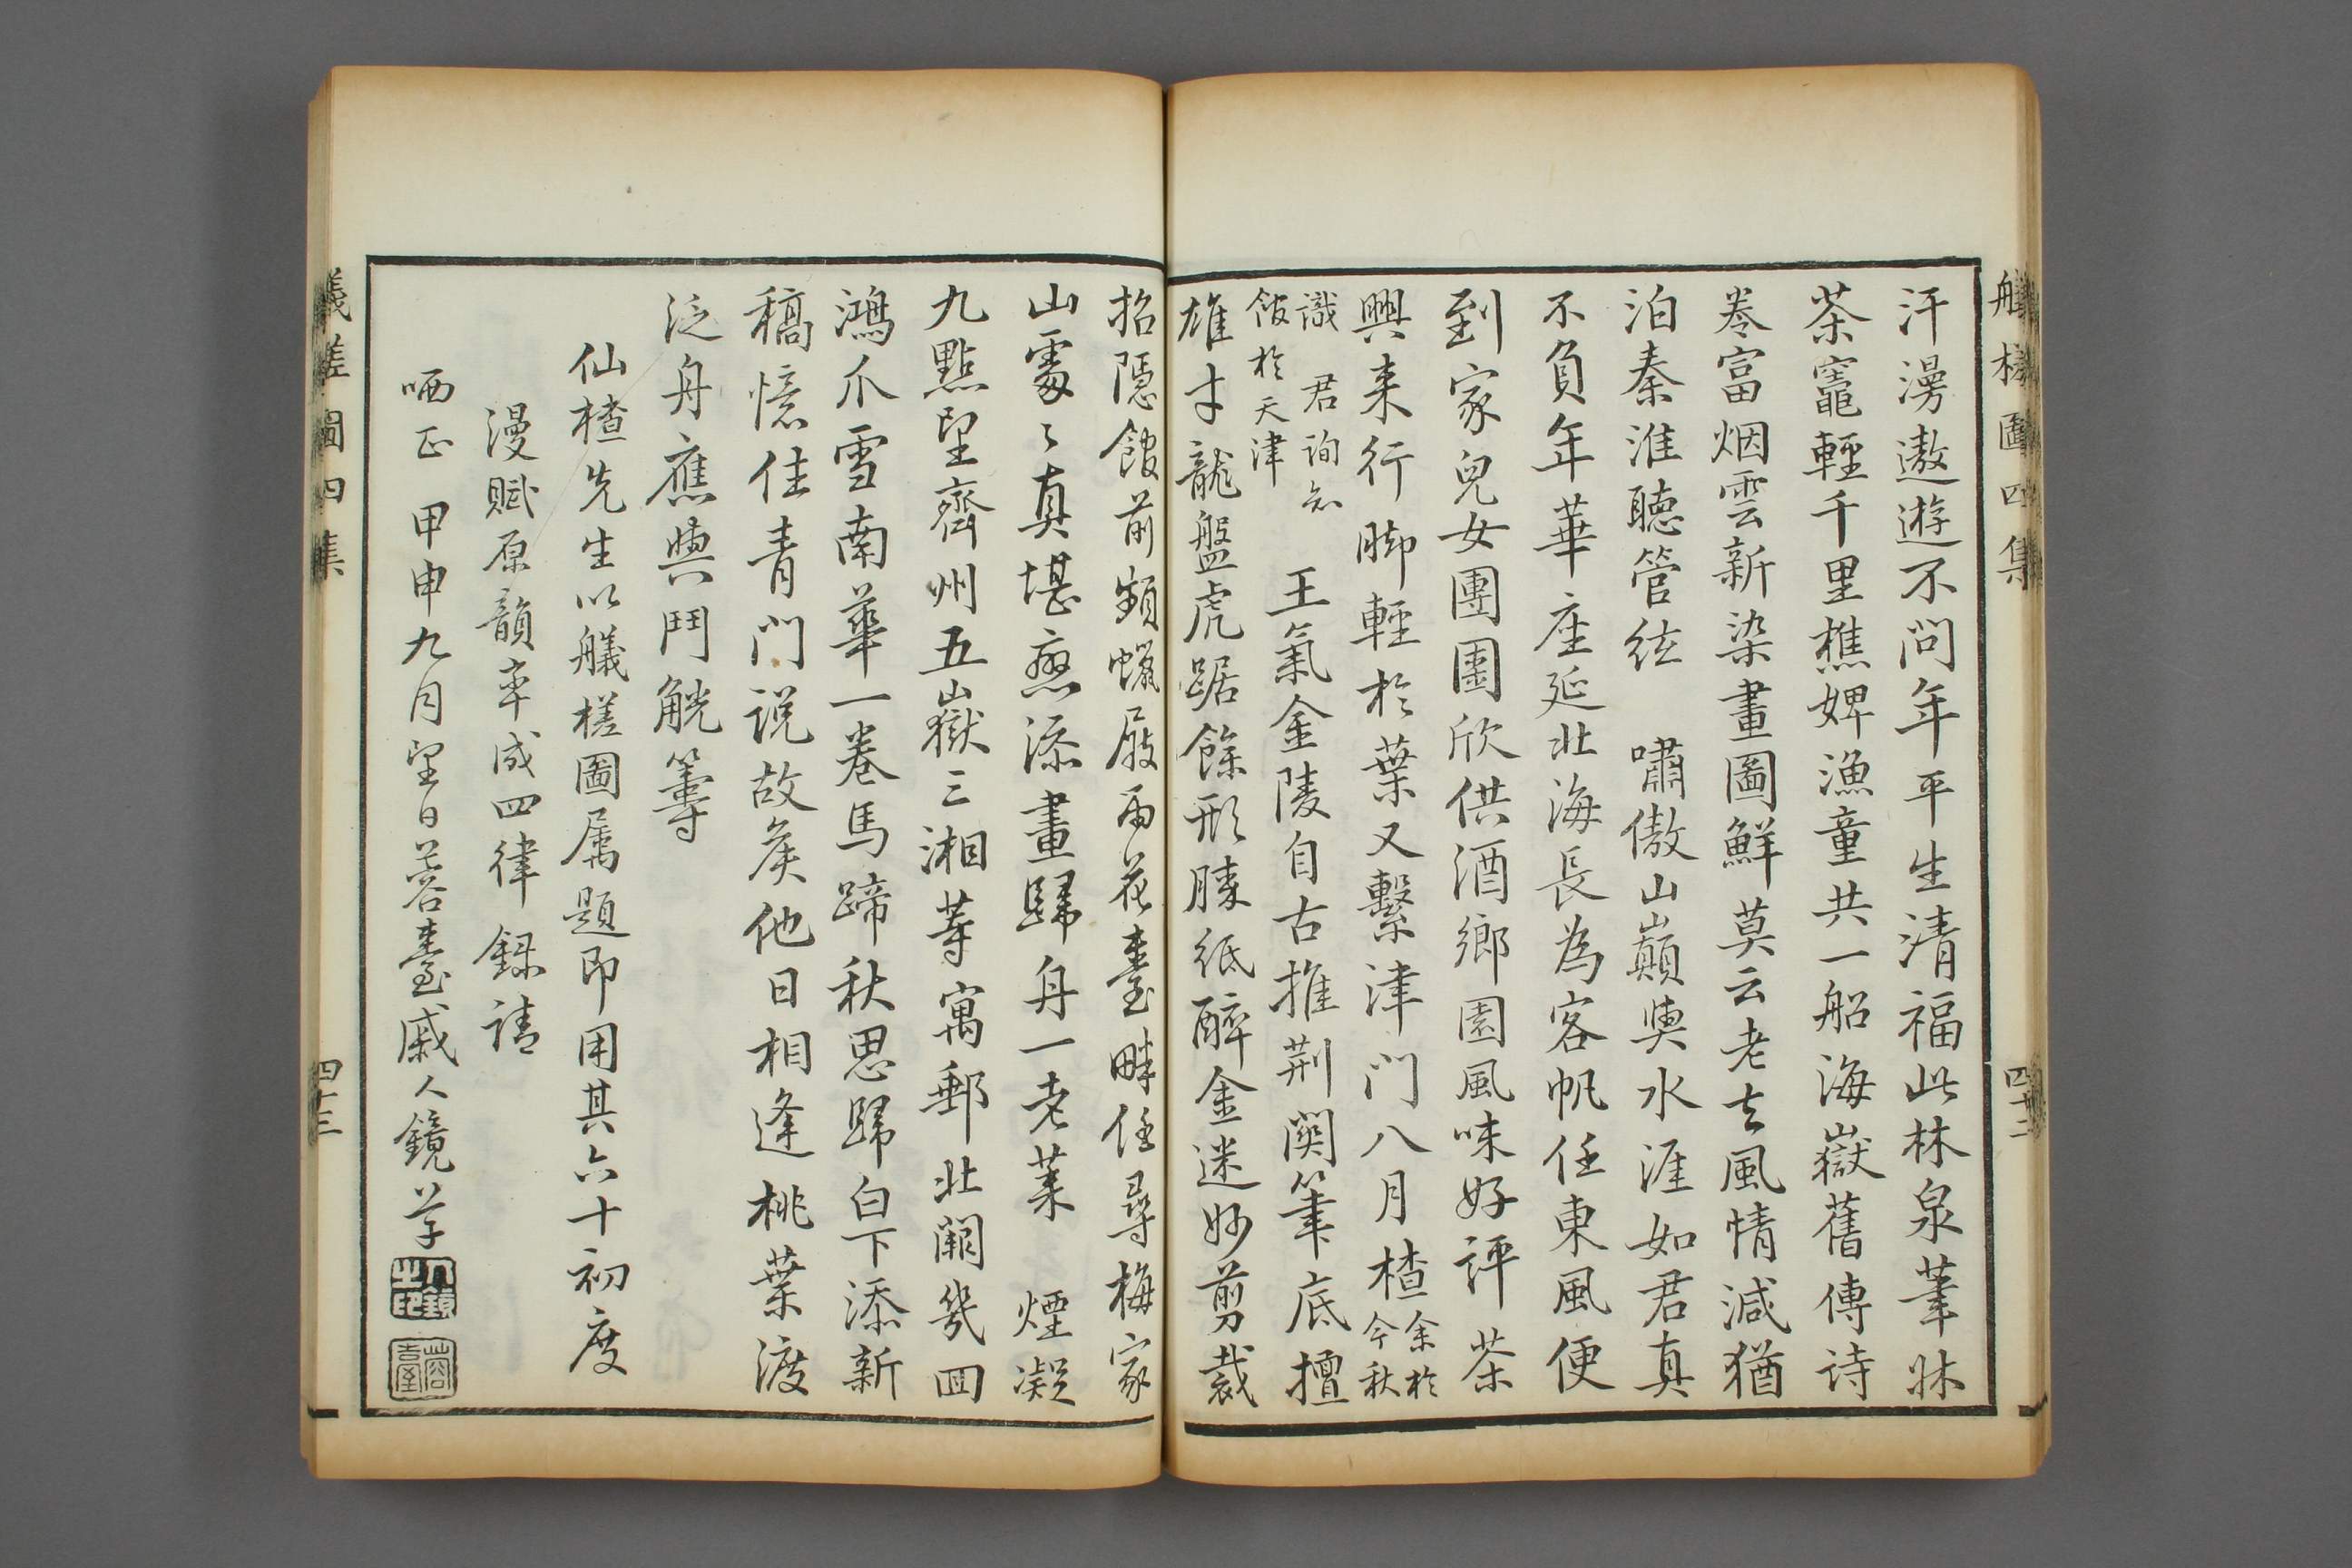 艤槎圖四集
四十二
汗漫遨遊不問年平生清福此林泉筆牀
茶竈輕千里樵婢漁童共一船海嶽舊傳詩
卷富烟雲新染畫圖鮮莫云老去風情減猶
泊秦淮聽管絃　嘯傲山巔與水涯如君真
不負年華座延北海長為客帆任東風便
到家兒女團圞欣供酒鄉園風味好評茶
興來行脚輕於葉又繫津門八月楂余於
今秋
識　君詢知
館於天津
王氣金陵自古推荊關筆底擅
雄才龍盤虎踞餘形勝紙醉金迷妙剪裁
招隱館前頻蠟屐雨花臺畔任尋梅家
山處〻真堪戀添畫歸舟一老萊　煙凝
九點望齊州五嶽三湘等寓郵北闕幾回
鴻爪雪南華一卷馬蹄秋思歸白下添新
稿憶住青門說故矦他日相逢桃葉渡
泛舟應與鬥觥籌
仙楂先生以艤槎圖屬題即用其六十初度
漫賦原韻率成四律錄請
哂正　甲申九月望日蓉臺戚人鏡草
人鏡之印
蓉臺
艤槎圖四集
四十三